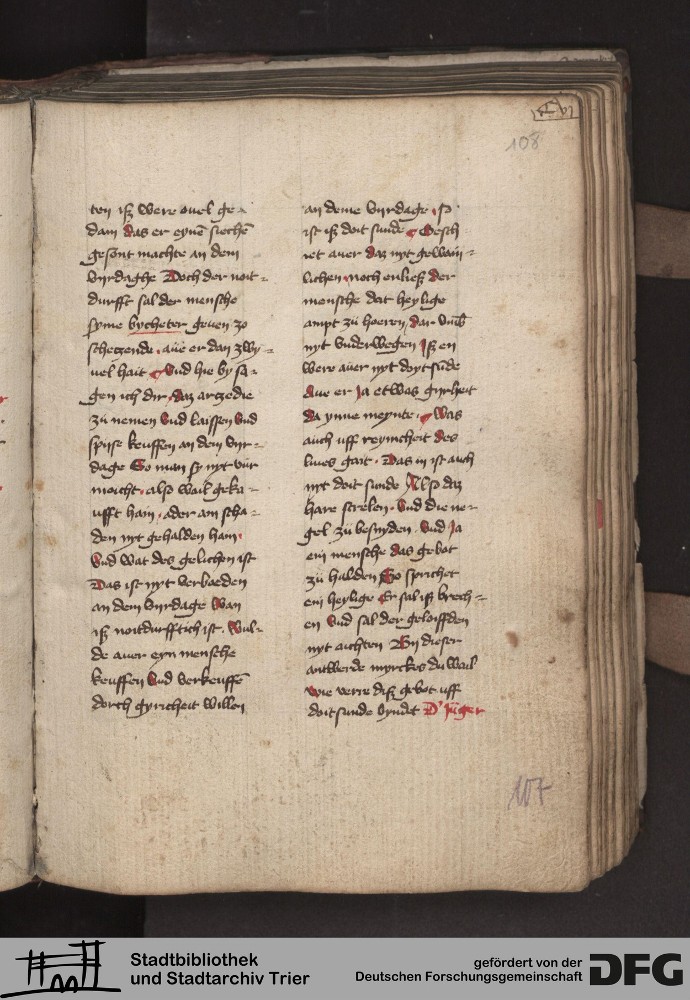 108
ten iſz were ouel ge-
dain das er eynē siechē
gesont machte an dem
vyrdaghe Doch der noit-
durfft sal der mensche
syme bychteter geuen zo
scheczende . aue er dan zwy-
uel hait Vnd hie by sa-
gen ich dir daz arczedie
zu nemen vnd laissen vnd
spise keuffen an dem vyr-
dage So man sy nyt vur
moicht . also wail geka-
ufft hain . ader am scha-
den nyt gehalden hain .
Vnd wat des gelichen ist
Das ist nyt verboeden
an dem vyrdage Wan
iſz noitdurfftich ist . Wul-
de auer eyn mensche
keuffen vnd verkeuffē
dorch gyricheit willen
an deme vyrdage . so
ist iſz doit sunde Gesch
iet auer daz nyt gewain-
lichen . noch enließ der
mensche dat heylige
ampt zu hoeren , dar vmb
nyt vnderwegen Iſz en
were auer nyt doytsūde
Aue er Ja etwas gyrheit
da ynne meynte . Was
auch uff reyncheit des
liues gait . Das in ist auch
nyt doit sunde Also daz
hare strelen . vnd die ne-
gel zu besnyden . vnd Ja
ein mensche das gebot
zu halden So sprichet
ein heylige Er sal iſz brech-
en vnd sal der geloiffden
nyt auchten An dieser
antwerde myrckes du wail
wie verre diſz gebot uff
doitsunde byndet D' Jüger
107
Stadtbibliothek
und Stadtarchiv Trier
gefördert von der
Deutschen Forschungsgemeinschaft
DFG